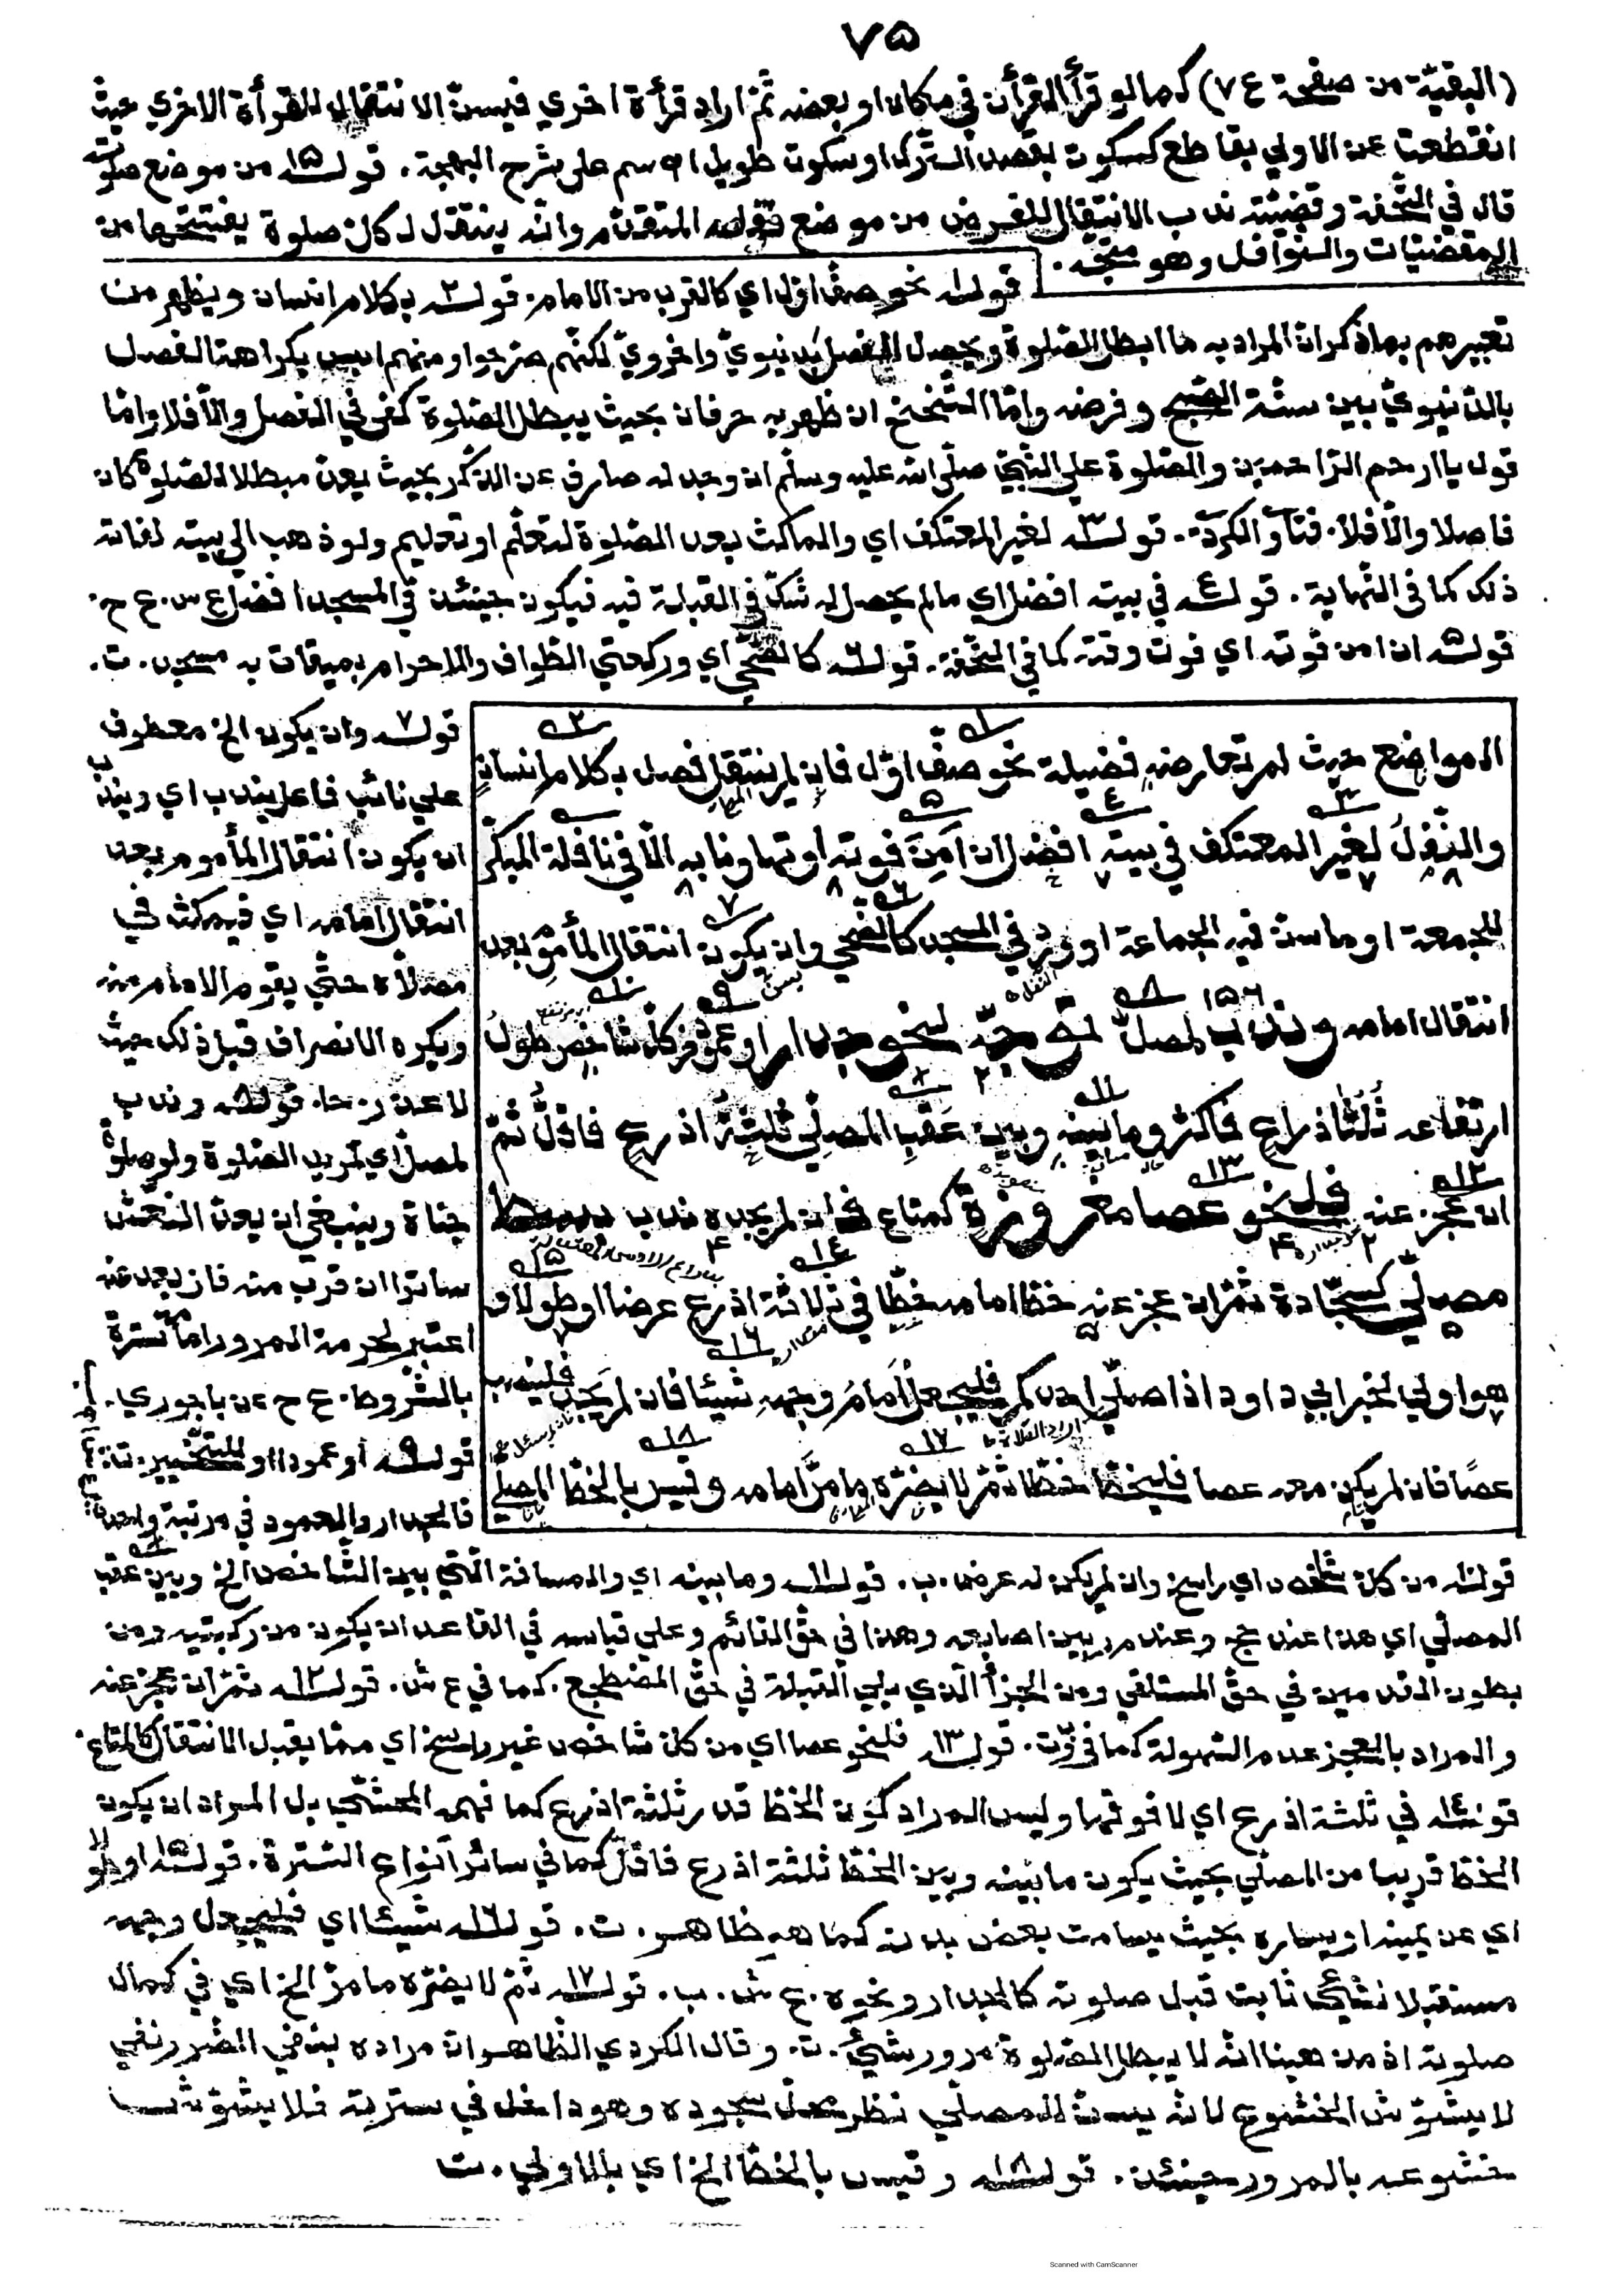 ٧۵
(البقيّة من صفحة ٧٤) كما لو قرأ القرأن في مكان او بعضه ثمّ اراد قرأة اخري فيسنّ الانتقال للقرأة الاخري حيث
انقطعت عن الاولي بقاطع كسكوت بقصد التّرك او سكوت طويل اه سم علي شرح البهجة. قوله ١۵ من موضع صلوته
قال في التّحفة وقضيّته ندب الانتقال للفرض من موضع نفله المتقدّم وانّه ينتقل لكلّ صلوة يفتتحها من
المقضيّات والنّوافل وهو متّجه.
قوله ١ نحو صفّ اوّل اي كالقرب من الامام. قوله ٢ بكلام انسان ويظهر من
تعبيرهم بماذكر انّ المراد به ما ابطل الصّلوة ويحصل الفصل بدنيويّ واخرويّ لكنّهم صرّحوا ومنهم بكراهة الفصل
بالدّنيويّ بين سنّة الصّبح وفرضه وامّا التّنحنح ان ظهر به حرفان بحيث يبطل الصّلوة كفي في الفصل والّا فلا وامّا
قول ياارحم الرّاحمين والصّلوة علي النّبيّ صلّي الله عليه وسلّم ان وجد له صارف عن الذّكر بحيث يعدّ مبطلا للصّلوة كان
فاصلا والّا فلا. فتاو الكردي. قوله ٣ لغير المعتكف اي والماكث بعد الصّلوة لتعلّم او تعليم ولو ذهب الي بيته لفاته
ذلك كما في النّهاية. قوله ٤ في بيته افضل اي مالم يحصل له شكّ في القبلة فيه فيكون حينئذ في المسجد افضل ع س. ع ح.
قوله ۵ ان امن فوته اي فوت وقته كما في التّحفة. قوله ٦ كالضّحي اي وركعتي الطّواف والاحرام بميقات به مسجد. ت.
المواضع حيث لم تعارضه فضيلة نحو صفّ اوّل فان لم ينتقل فصل بكلام انسان
والنّفل لغير المعتكف في بيته افضل ان امن فوته او تهاونا به الّا في نافلة المبكّر
للجمعة او ما سنّ فيه الجماعة او ورد في المسجد كالضّحي وان يكون انتقال المأموم بعد
انتقال امامه وندب لمصلّ توجّه لنحو جدار او عمود من كلّ شاخص طول
ارتفاعه ثلثا ذراع فاكثر وما بينه وبين عقب المصلّي ثلثة اذرع فاقلّ ثمّ
ان عجز عنه فلنحو عصا مغروزة كمتاع فان لم يجده ندب بسط
مصلّي كسجّادة ثمّ ان عجز عنه خطّ امامه خطّا في ثلاثة اذرع عرضا او طولا و
هو اولي لخبر ابي داود اذا صلّي احدكم فليجعل امام وجهه شيئا فان لم يجد فلينصب
عصًا فان لم يكن معه عصا فليخطّ خطّا ثمّ لا يضرّه ما مرّ امامه وقيس بالخطّ المصلّي
قوله ٧ وان يكون الخ معطوف
علي نائب فاعل يندب اي ويندب
ان يكون انتقال المأموم بعد
انتقال امامه اي فيمكث في
مصلّاه حتّي يقوم الامام منه
ويكره الانصراف قبل ذلك حيث
لا عذر. حا. قوله ٨ وندب
لمصلّ اي لمريد الصّلوة ولو صلوة
جنازة وينبغي ان يعدّ النّعش
ساترا ان قرب منه فان بعد عنه
اعتبر لحرمة المرور امامه سترة
بالشّروط. ع ح عن باجوري.
قوله ٩ او عمود او للتّخيير. ت:
فالجدار والعمود في مرتبة واحدة
قوله ١٠ من كلّ شاخص اي راسخ وان لم يكن له عرض. ب. قوله ١١ وما بينه اي والمسافة الّتي بين الشّاخص الخ وبين عقب
المصلّي اي هذا عند حج وعند م ر بين اصابعه وهذا في حقّ القائم وعلي قياسه في القاعد ان يكون من ركبتيه ومن
بطون القدمين في حقّ المستلقي ومن الجزأ الّذي يلي القبلة في حقّ المضطجع. كما في ع ش. قوله ١٢ ثمّ ان عجز عنه
والمراد بالعجز عدم السّهولة كما في ت. قوله ١٣ فلنحو عصا اي من كلّ شاخص غير راسخ اي ممّا يقبل الانتقال كالمتاع.
قوله ١٤ في ثلثة اذرع اي لا فوقها وليس المراد كون الخطّ قدر ثلثة اذرع كما فهمه المحشّي بل المراد ان يكون
الخطّ قريبا من المصلّي بحيث يكون ما بينه وبين الخطّ ثلثة اذرع فاقلّ كما في سائر انواع السّترة. قوله ١۵ او طولا
اي عن يمينه او يساره بحيث يسامت بعض بدنه كما هو ظاهر. ت. قوله ١٦ شيئا اي فليجعل وجهه
مستقبلا لشيئ ثابت قبل صلوته كالجدار ونحوه. ع ش. ب. قوله ١٧ ثمّ لا يضرّه ما مرّ الخ اي في كمال
صلوته اذ مذهبنا انّه لا يبطل الصّلوة مرور شيئ. ت. وقال الكردي الظّاهر انّ مراده بنفي الضّرر نفي
لا يشوّش الخشوع لانّه يسنّ للمصلّي نظر محلّ سجوده وهو داخل في سترته فلا يشوّش
خشوعه بالمرور حينئذ. قوله ١٨ وقيس بالخطّ الخ اي بالاولي. ت
Scanned with CamScanner